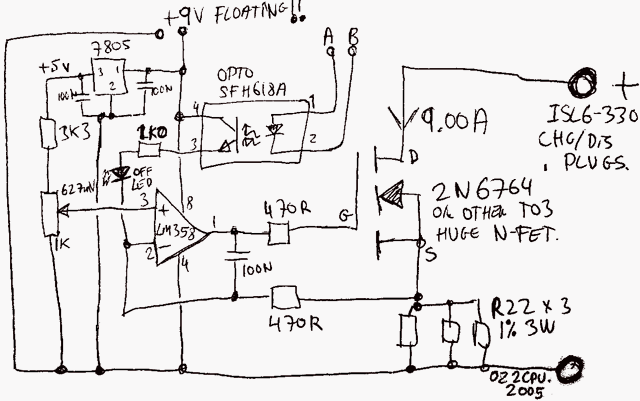 +9V FLOATING!!
A B
7805
+5V
3 1
2
100N
100N
OPTO
SFH618A
4 1
3 2
3K3
1K0
OFF
LED
627mV
1K
3
8
+
LM358
1
-
2
4
470R
100N
470R
G
D
S
9.00A
+
ISL6-330
CHG/DIS
PLUGS.
2N6764
OR OTHER TO3
HUGE N-FET.
R22 x 3
1% 3W
OZ2CPU.
2005
-